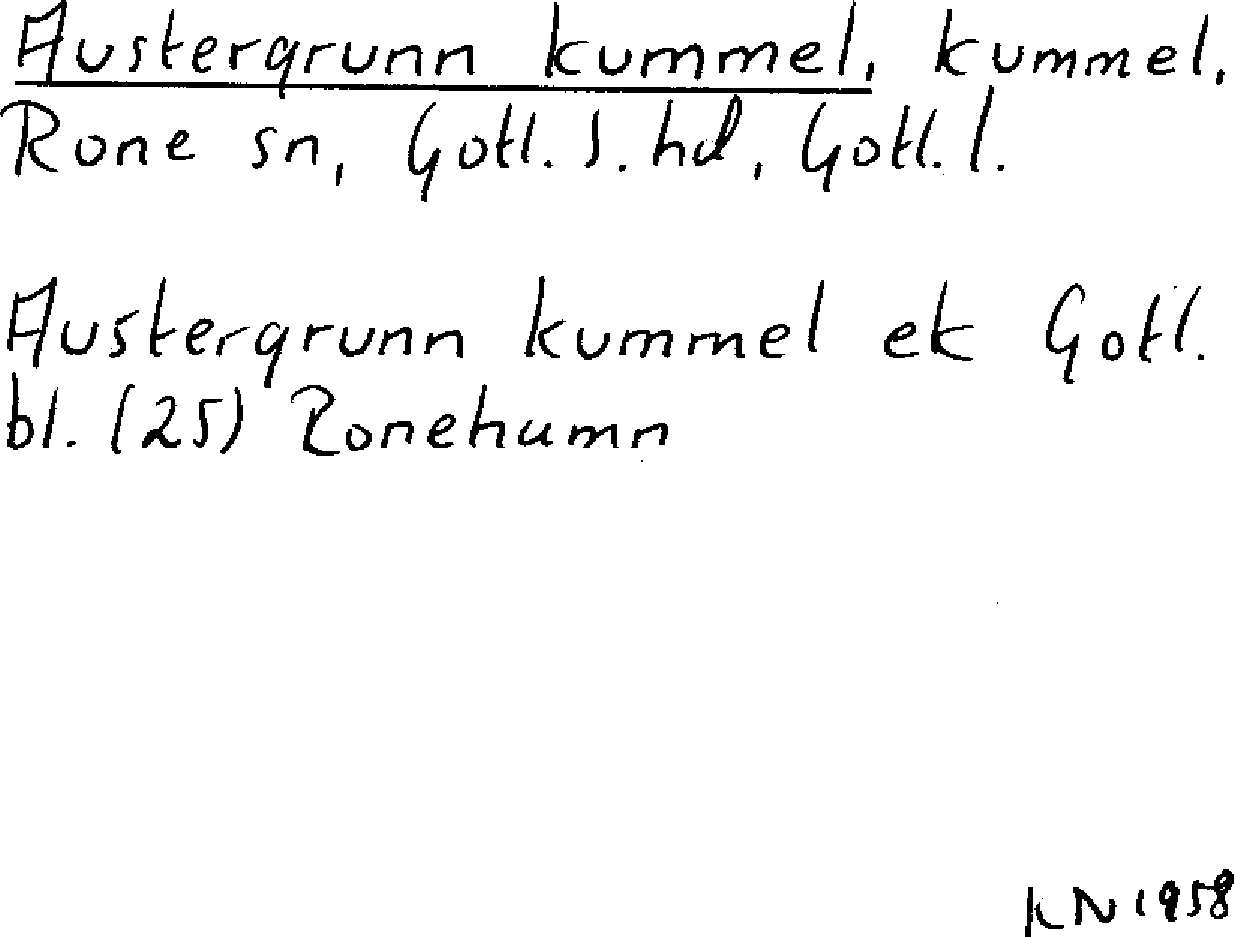 Austergrunn kummel, kummel,
Rone sn, Gotl. S. hd, Gotl. l.
Austergrunn kummel ek Gotl.
bl. (25) Ronehamn
KN 1958